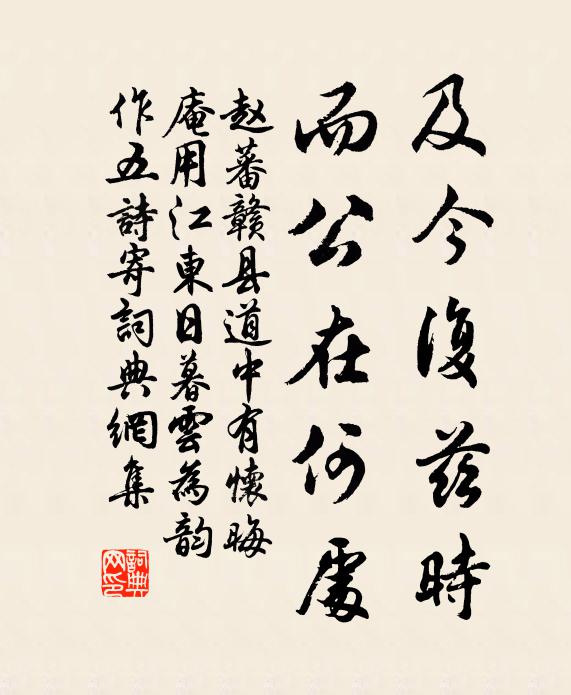 及今復茲時
而公在何處
赵蕃赣县道中有懷晦
庵用江東日暮雲為韵
作五詩寄詞典網集
詞典
网印